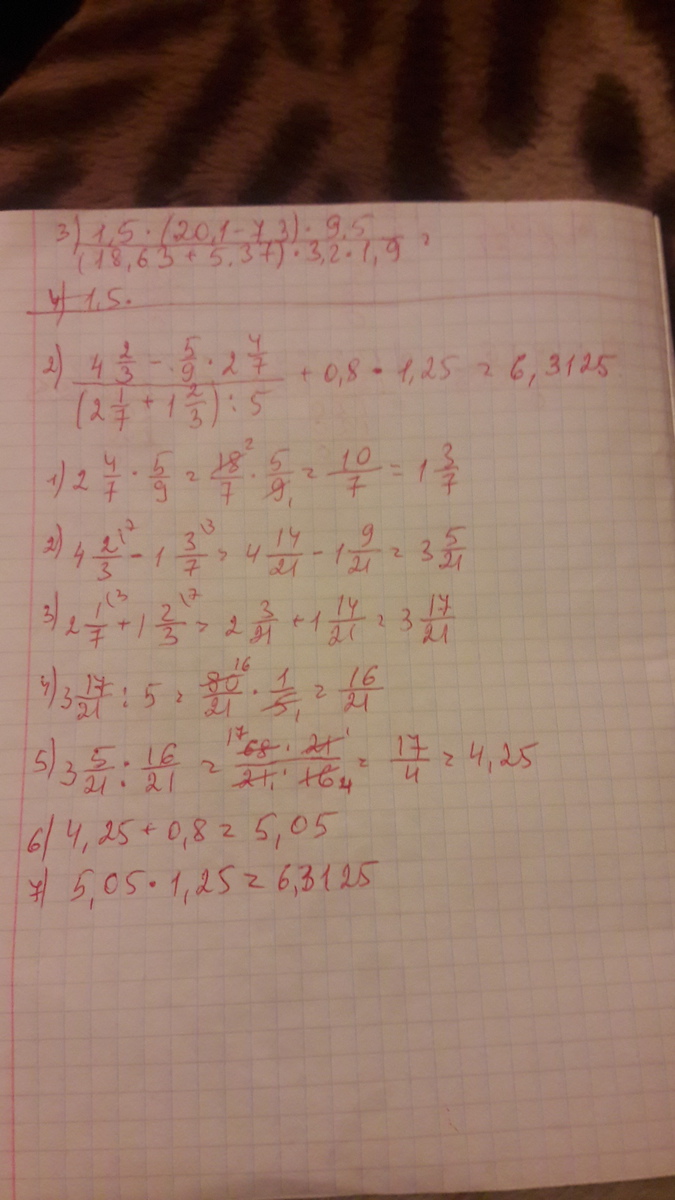 3) 1,5 · (20,1 - 7,3) · 9,5 =
(18,63 + 5,37) · 3,2 · 1,9
4) 1,5.
2) 4 2/3 - 5/9 · 2 4/7 + 0,8 · 1,25 = 6,3125
(2 1/7 + 1 2/3) : 5
1) 2 4/7 · 5/9 = 18/7 2 · 5/9 1 = 10/7 = 1 3/7
2) 4 2/3 \7 - 1 3/7 \3 = 4 14/21 - 1 9/21 = 3 5/21
3) 2 1/7 \3 + 1 2/3 \7 = 2 3/21 + 1 14/21 = 3 17/21
4) 3 17/21 : 5 = 80/21 16 · 1/5 1 = 16/21
5) 3 5/21 : 16/21 = 17 68 · 21 1 / 21 1 · 16 4 = 17/4 = 4,25
6) 4,25 + 0,8 = 5,05
7) 5,05 · 1,25 = 6,3125